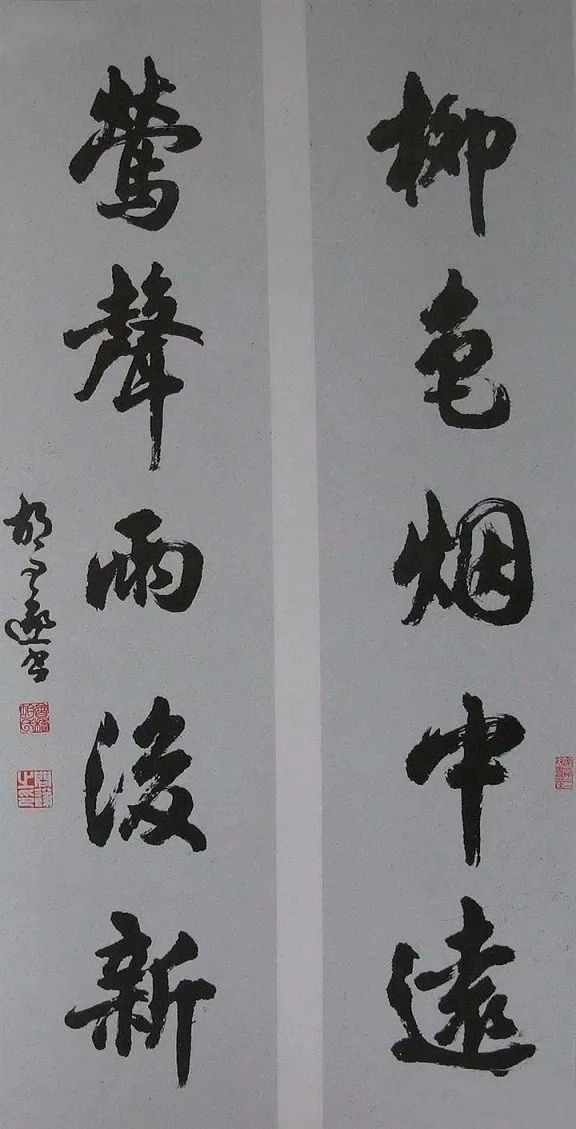 柳色烟中遠
鶯聲雨後新